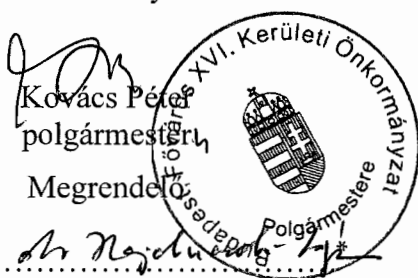 Kovács Péter
polgármester
Megrendelő
Budapest Főváros XVI. Kerületi Önkormányzat
Polgármestere